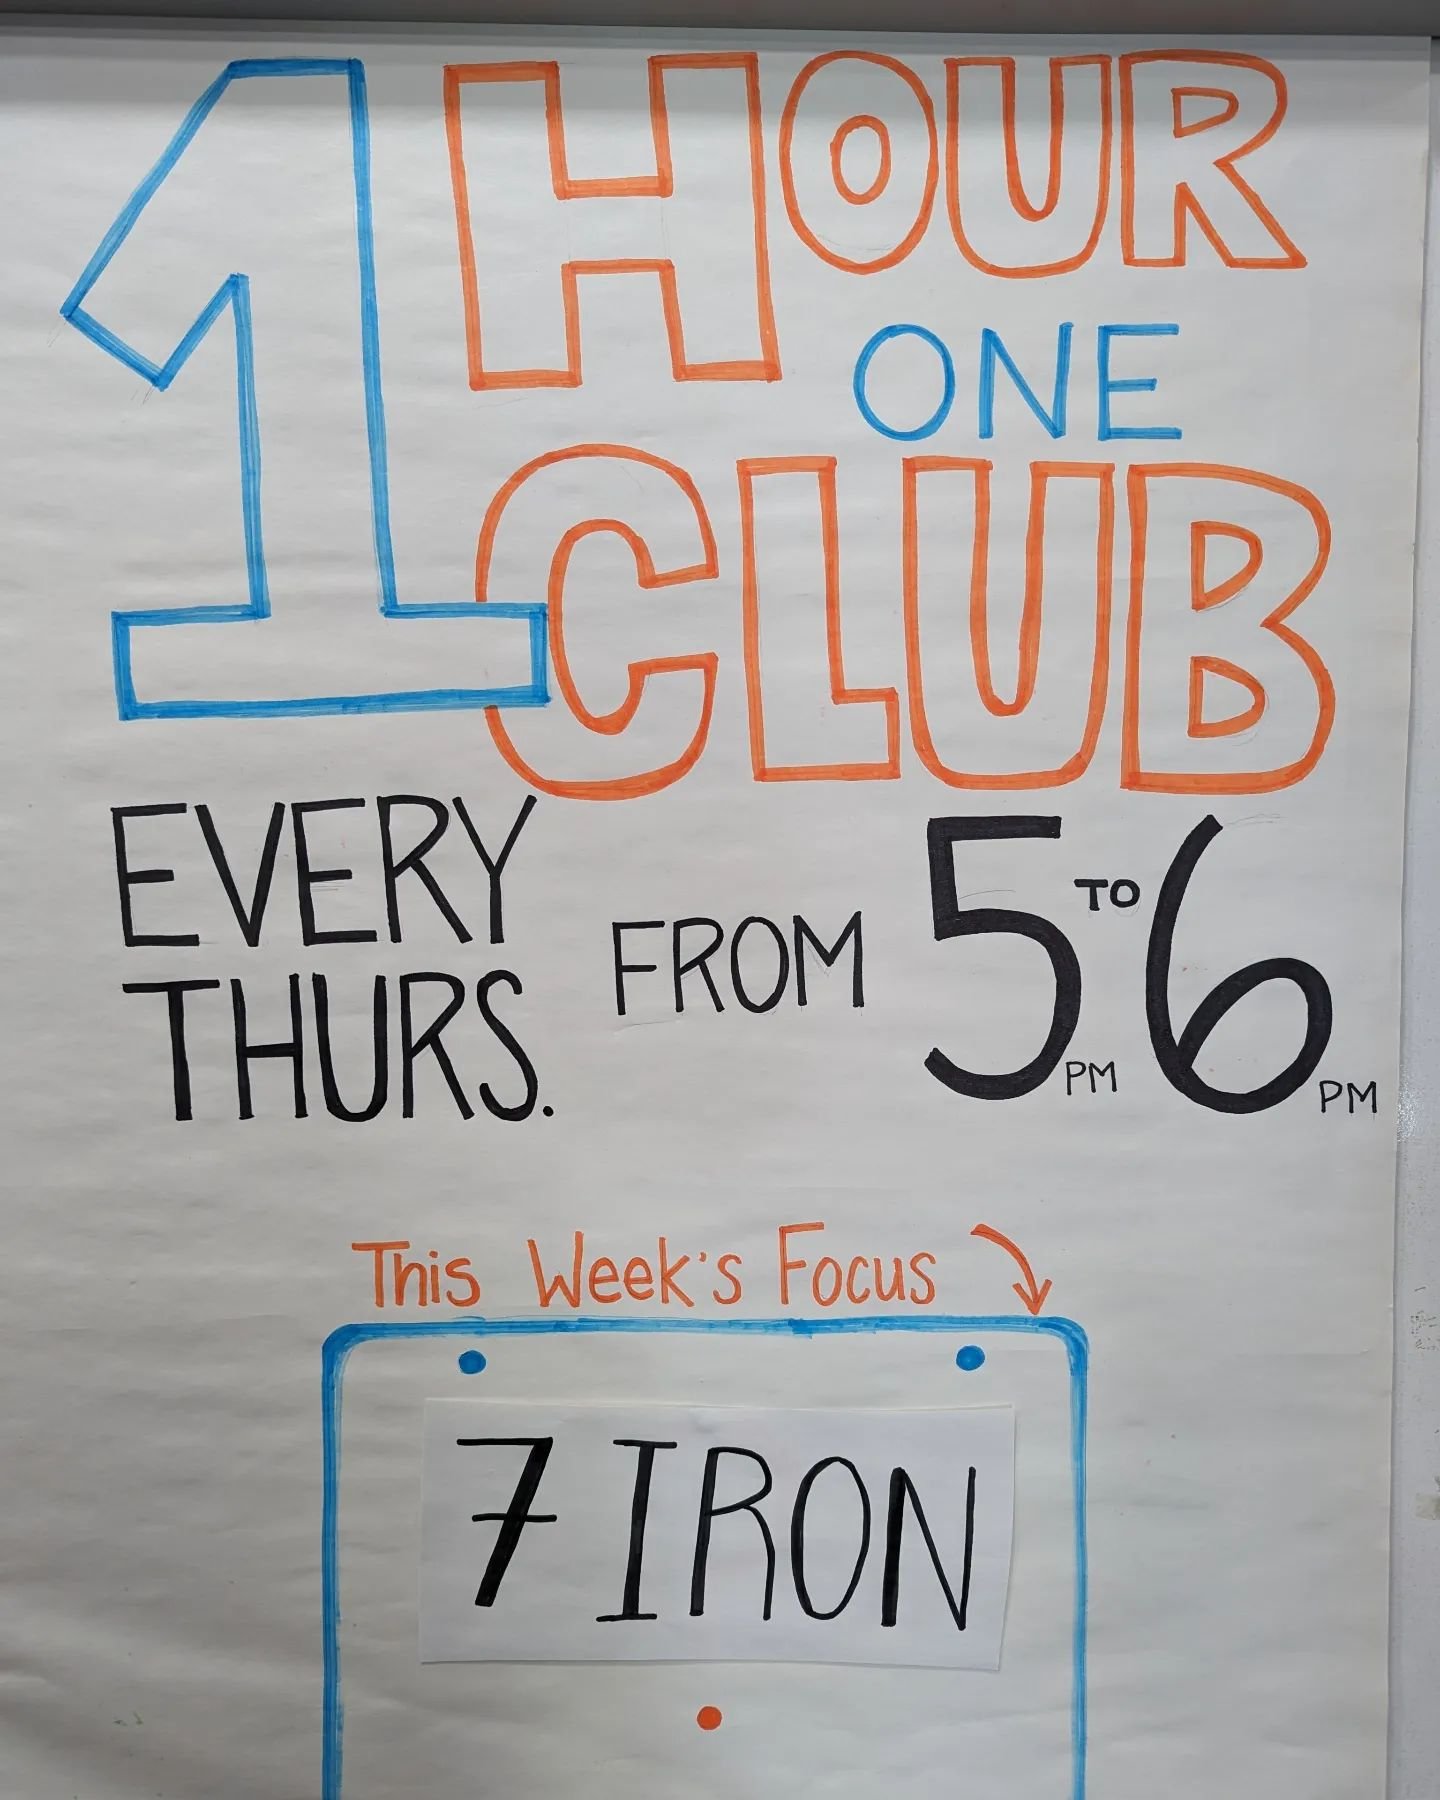 1 HOUR
ONE
CLUB
EVERY
THURS. FROM 5PM TO 6PM
This Week's Focus
7 IRON